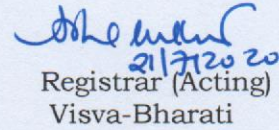 21/7/2020
Registrar (Acting)
Visva-Bharati